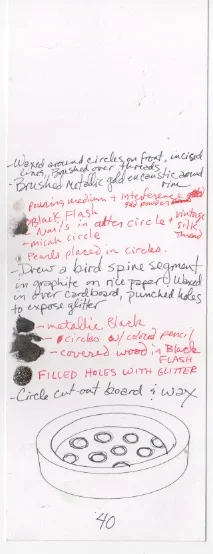 -Waxed around circles on front, incised
lines, Brushed over threads
-Brushed metallic gold encaustic around
rim
Pouring medium + Interference gold
gold powder
Black Flash
- Nails in outer circle + vintage
silk
thread
- micah circle
Pearls placed in circles.
-Drew a bird spine segment
in graphite on rice paper, Waxed
in over cardboard, punched holes
to expose glitter
- metallic Black
- circles w/ colored pencil
- covered wood in Black
FLASH
FILLED HOLES WITH GLITTER
- Circle cut-out board ? wax
40